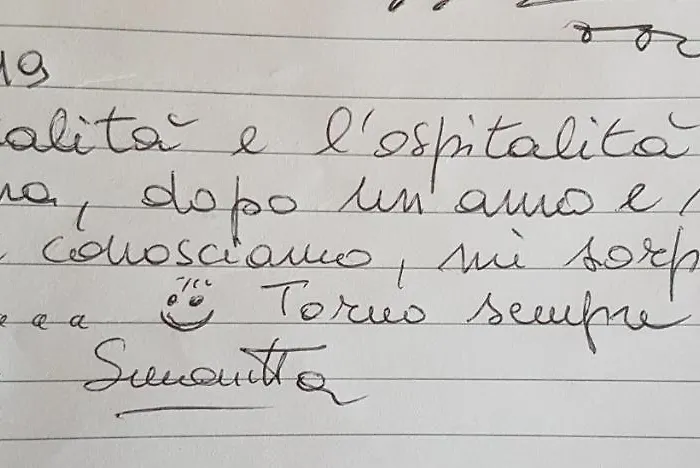 19
alità e l'ospitalità
na, dopo un'anno e
conosciamo, mi sorp
e a a Torno sempre
Simonetta